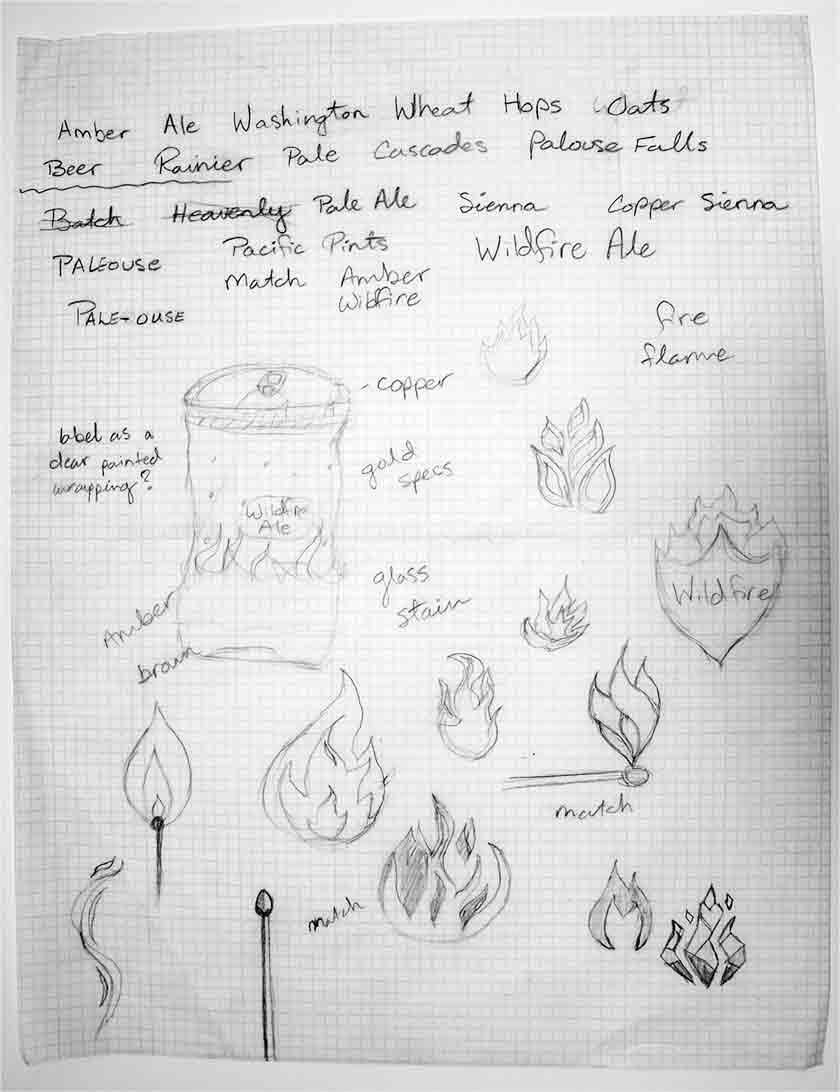 Amber Ale Washington Wheat Hops Oats
Beer Rainier Pale Cascades Palouse Falls
Batch Heavenly Pale Ale Sienna Copper Sienna
PALEOUSE Pacific Pints Wildfire Ale
Match Amber
Wildfire
PALE-OUSE
fire
flame
copper
label as a
clear painted
wrapping?
gold
specs
Wildfire
Ale
glass
stain
Wildfire
Amber
brown
match
match